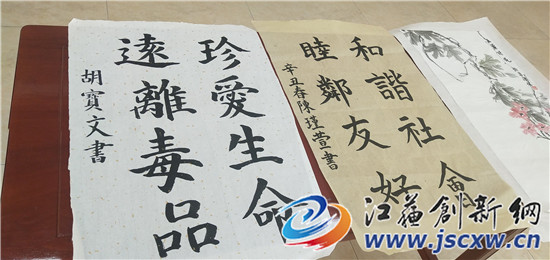 珍愛生命
遠離毒品
胡寶文書
和諧社會
睦鄰友好
辛丑春陳瑾萱書
江蘇創新網
www.jscxw.cn